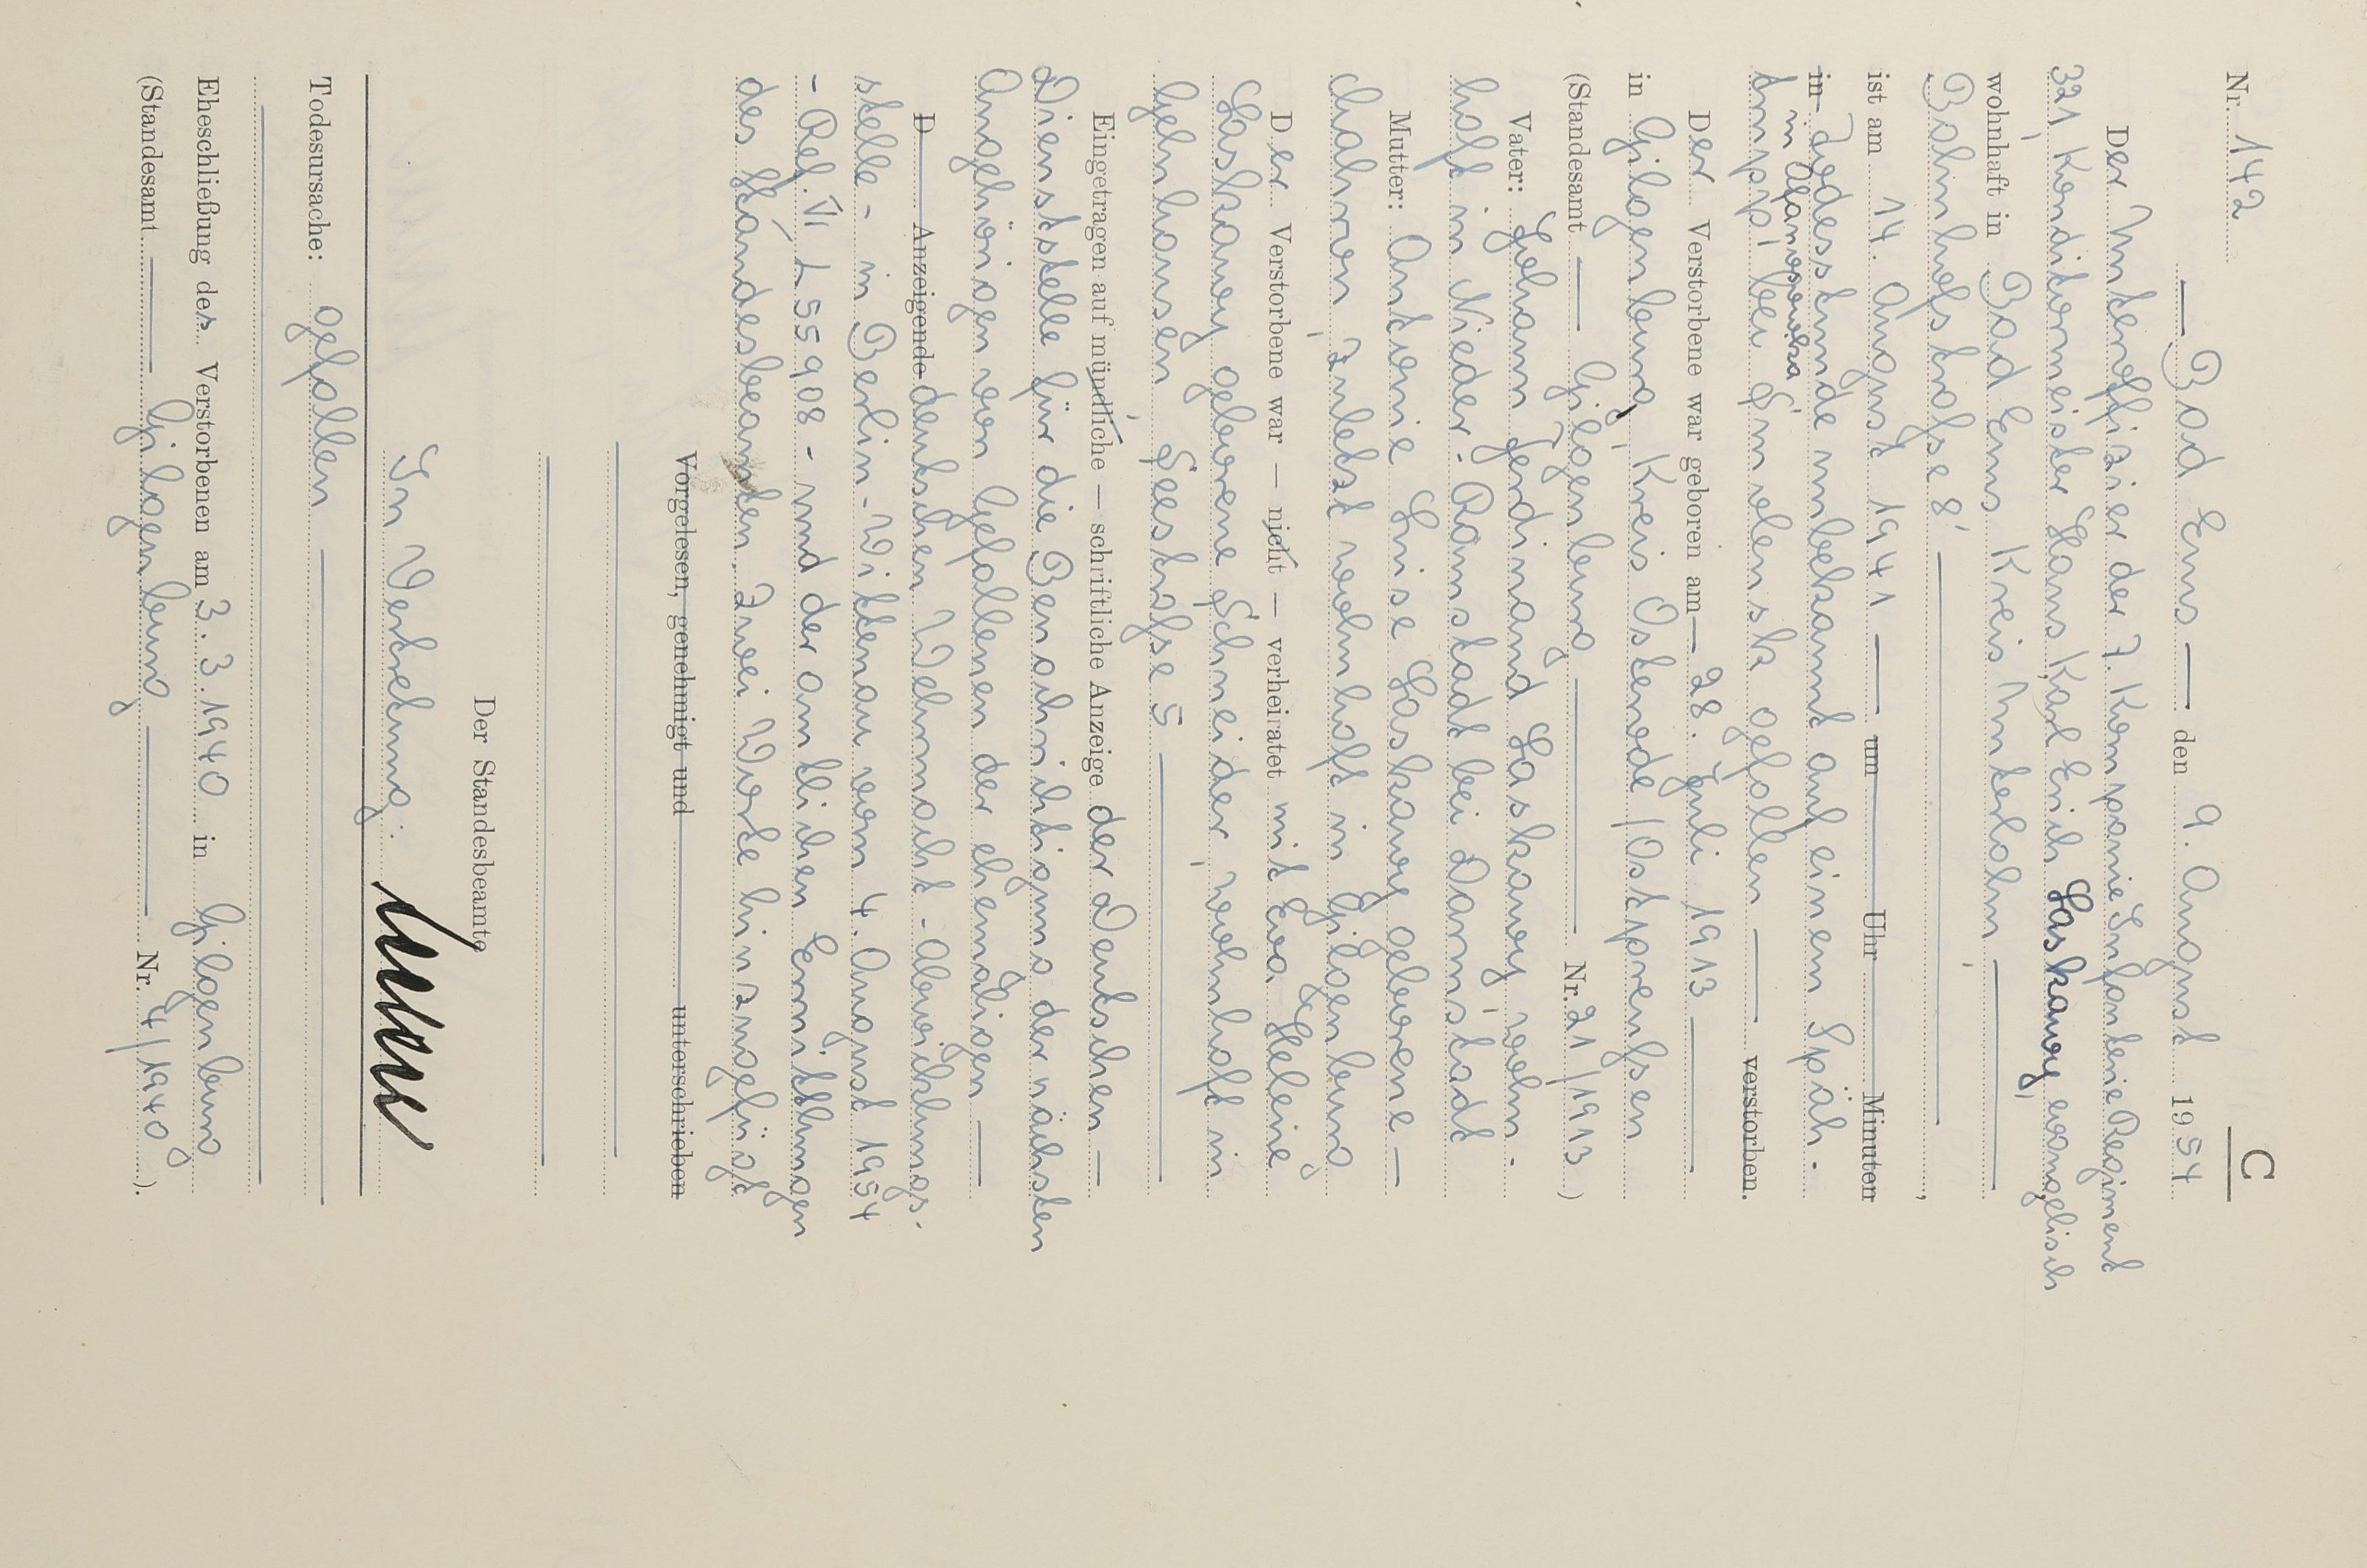 C
Nr. 142
— Bad Ems — den 9. August 1954
Der Unteroffizier der 7. Kompanie Infanterie Regiment
321, Konditormeister Hans Karl Erich Laskawy, evangelisch
wohnhaft in Bad Ems Kreis Unterlahn,
Bahnhofstraße 8,
ist am 14. August 1941 — um Uhr Minuten
in Todesstunde unbekannt auf einem Späh-
in
trupp, bei Smolensk gefallen — verstorben.
Der Verstorbene war geboren am — 28. Juli 1913
in Gilgenburg, Kreis Osterode/Ostpreußen
(Standesamt — Gilgenburg — Nr. 21/1913)
Vater: Johann Ferdinand Laskawy, wohn-
haft in Nieder-Ramstadt bei Darmstadt
Mutter: Antonie Luise Laskawy geborene —
, zuletzt wohnhaft in Gilgenburg
Der Verstorbene war — nicht — verheiratet mit Eva Helene
Laskawy geborene Schneider, wohnhaft in
Gelnhausen, Seestraße 5
Eingetragen auf mündliche — schriftliche Anzeige der Deutschen —
Dienststelle für die Benachrichtigung der nächsten
Angehörigen von Gefallenen der ehemaligen —
D Anzeigende deutschen Wehrmacht - Abwicklungs-
stelle - in Berlin-Wittenau vom 4. August 1954
- Ref. VI/L 55908 - und der amtlichen Ermittlungen
des Standesbeamten. Zwei Worte hinzugefügt
Vorgelesen, genehmigt und unterschrieben
Der Standesbeamte
In Vertretung:
Todesursache: gefallen
Eheschließung des Verstorbenen am 3.3.1940 in Gilgenburg
(Standesamt — Gilgenburg — Nr. 4/1940).